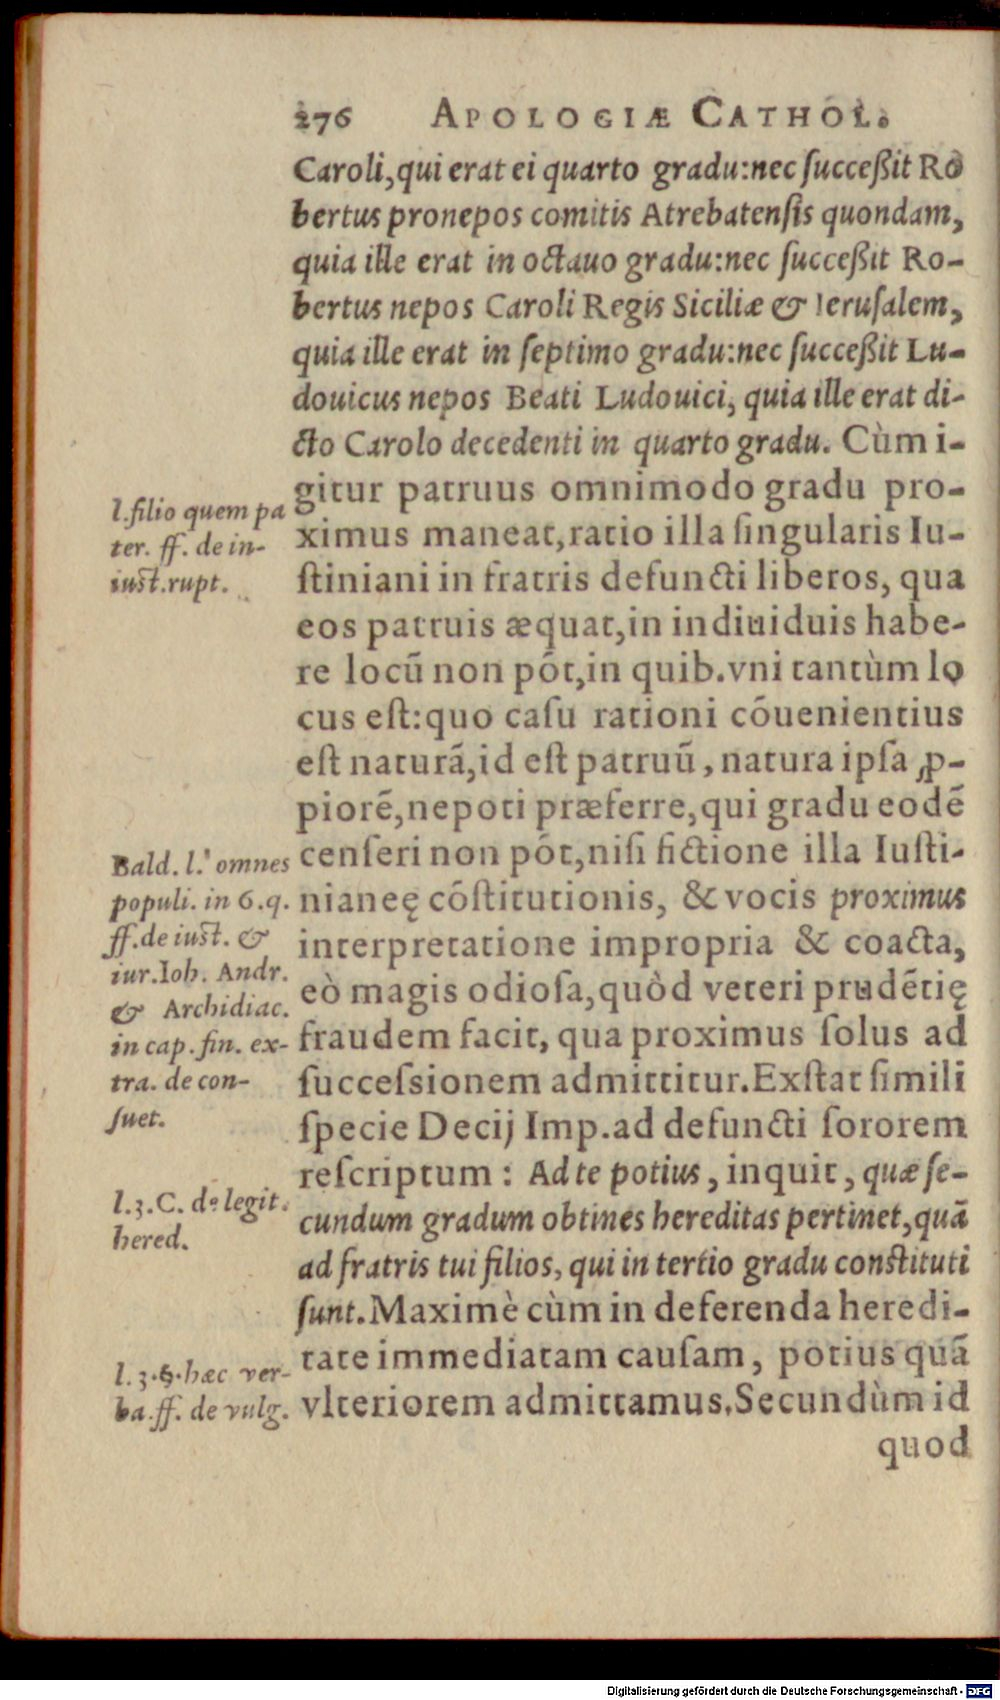 276 APOLOGIÆ CATHOL.
Caroli,qui erat ei quarto gradu:nec ſucceßit Ro
bertus pronepos comitis Atrebatenſis quondam,
quia ille erat in octauo gradu:nec ſucceßit Ro-
bertus nepos Caroli Regis Siciliæ & Ieruſalem,
quia ille erat in ſeptimo gradu:nec ſucceßit Lu-
douicus nepos Beati Ludouici, quia ille erat di-
cto Carolo decedenti in quarto gradu. Cùm i-
gitur patruus omnimodo gradu pro-
ximus maneat,ratio illa ſingularis Iu-
ſtiniani in fratris defuncti liberos, qua
eos patruis æquat,in indiuiduis habe-
re locū non pōt,in quib.vni tantùm lo
cus eſt:quo caſu rationi cōuenientius
eſt naturā,id eſt patruū, natura ipſa ꝓ-
piorē,nepoti præferre,qui gradu eodē
cenſeri non pōt,niſi fictione illa Iuſti-
nianeę cōſtitutionis, & vocis proximus
interpretatione impropria & coacta,
eò magis odioſa,quòd veteri prudētię
fraudem facit, qua proximus ſolus ad
ſucceſsionem admittitur.Exſtat ſimili
ſpecie Decij Imp.ad defuncti ſororem
reſcriptum : Ad te potius, inquit, quæ ſe-
cundum gradum obtines hereditas pertinet,quā
ad fratris tui filios, qui in tertio gradu conſtituti
ſunt. Maximè cùm in deferenda heredi-
tate immediatam cauſam, potius quā
vlteriorem admittamus.Secundùm id
quod
l.filio quem pa
ter. ff. de in-
iuſt.rupt.
Bald. l. omnes
populi. in 6.q.
ff.de iuſt. &
iur.Ioh. Andr.
& Archidiac.
in cap.fin. ex-
tra. de con-
ſuet.
l.3.C. de legit.
hered.
l.3.§.hæc ver-
ba.ff. de vulg.
Digitalisierung gefördert durch die Deutsche Forschungsgemeinschaft - DFG